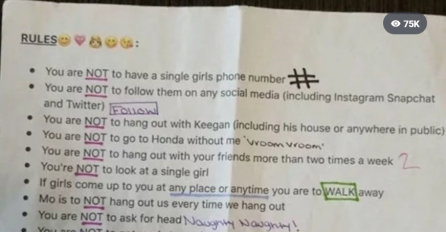 75K
RULES😊💗😹😊😘:
You are NOT to have a single girls phone number #
You are NOT to follow them on any social media (including Instagram Snapchat
and Twitter) FOLLOW
You are NOT to hang out with Keegan (including his house or anywhere in public)
You are NOT to go to Honda without me 'vroom vroom'
You are NOT to hang out with your friends more than two times a week 2
You're NOT to look at a single girl
If girls come up to you at any place or anytime you are to WALK away
Mo is to NOT hang out us every time we hang out
You are NOT to ask for head Naughty Naughty!
You are NOT to